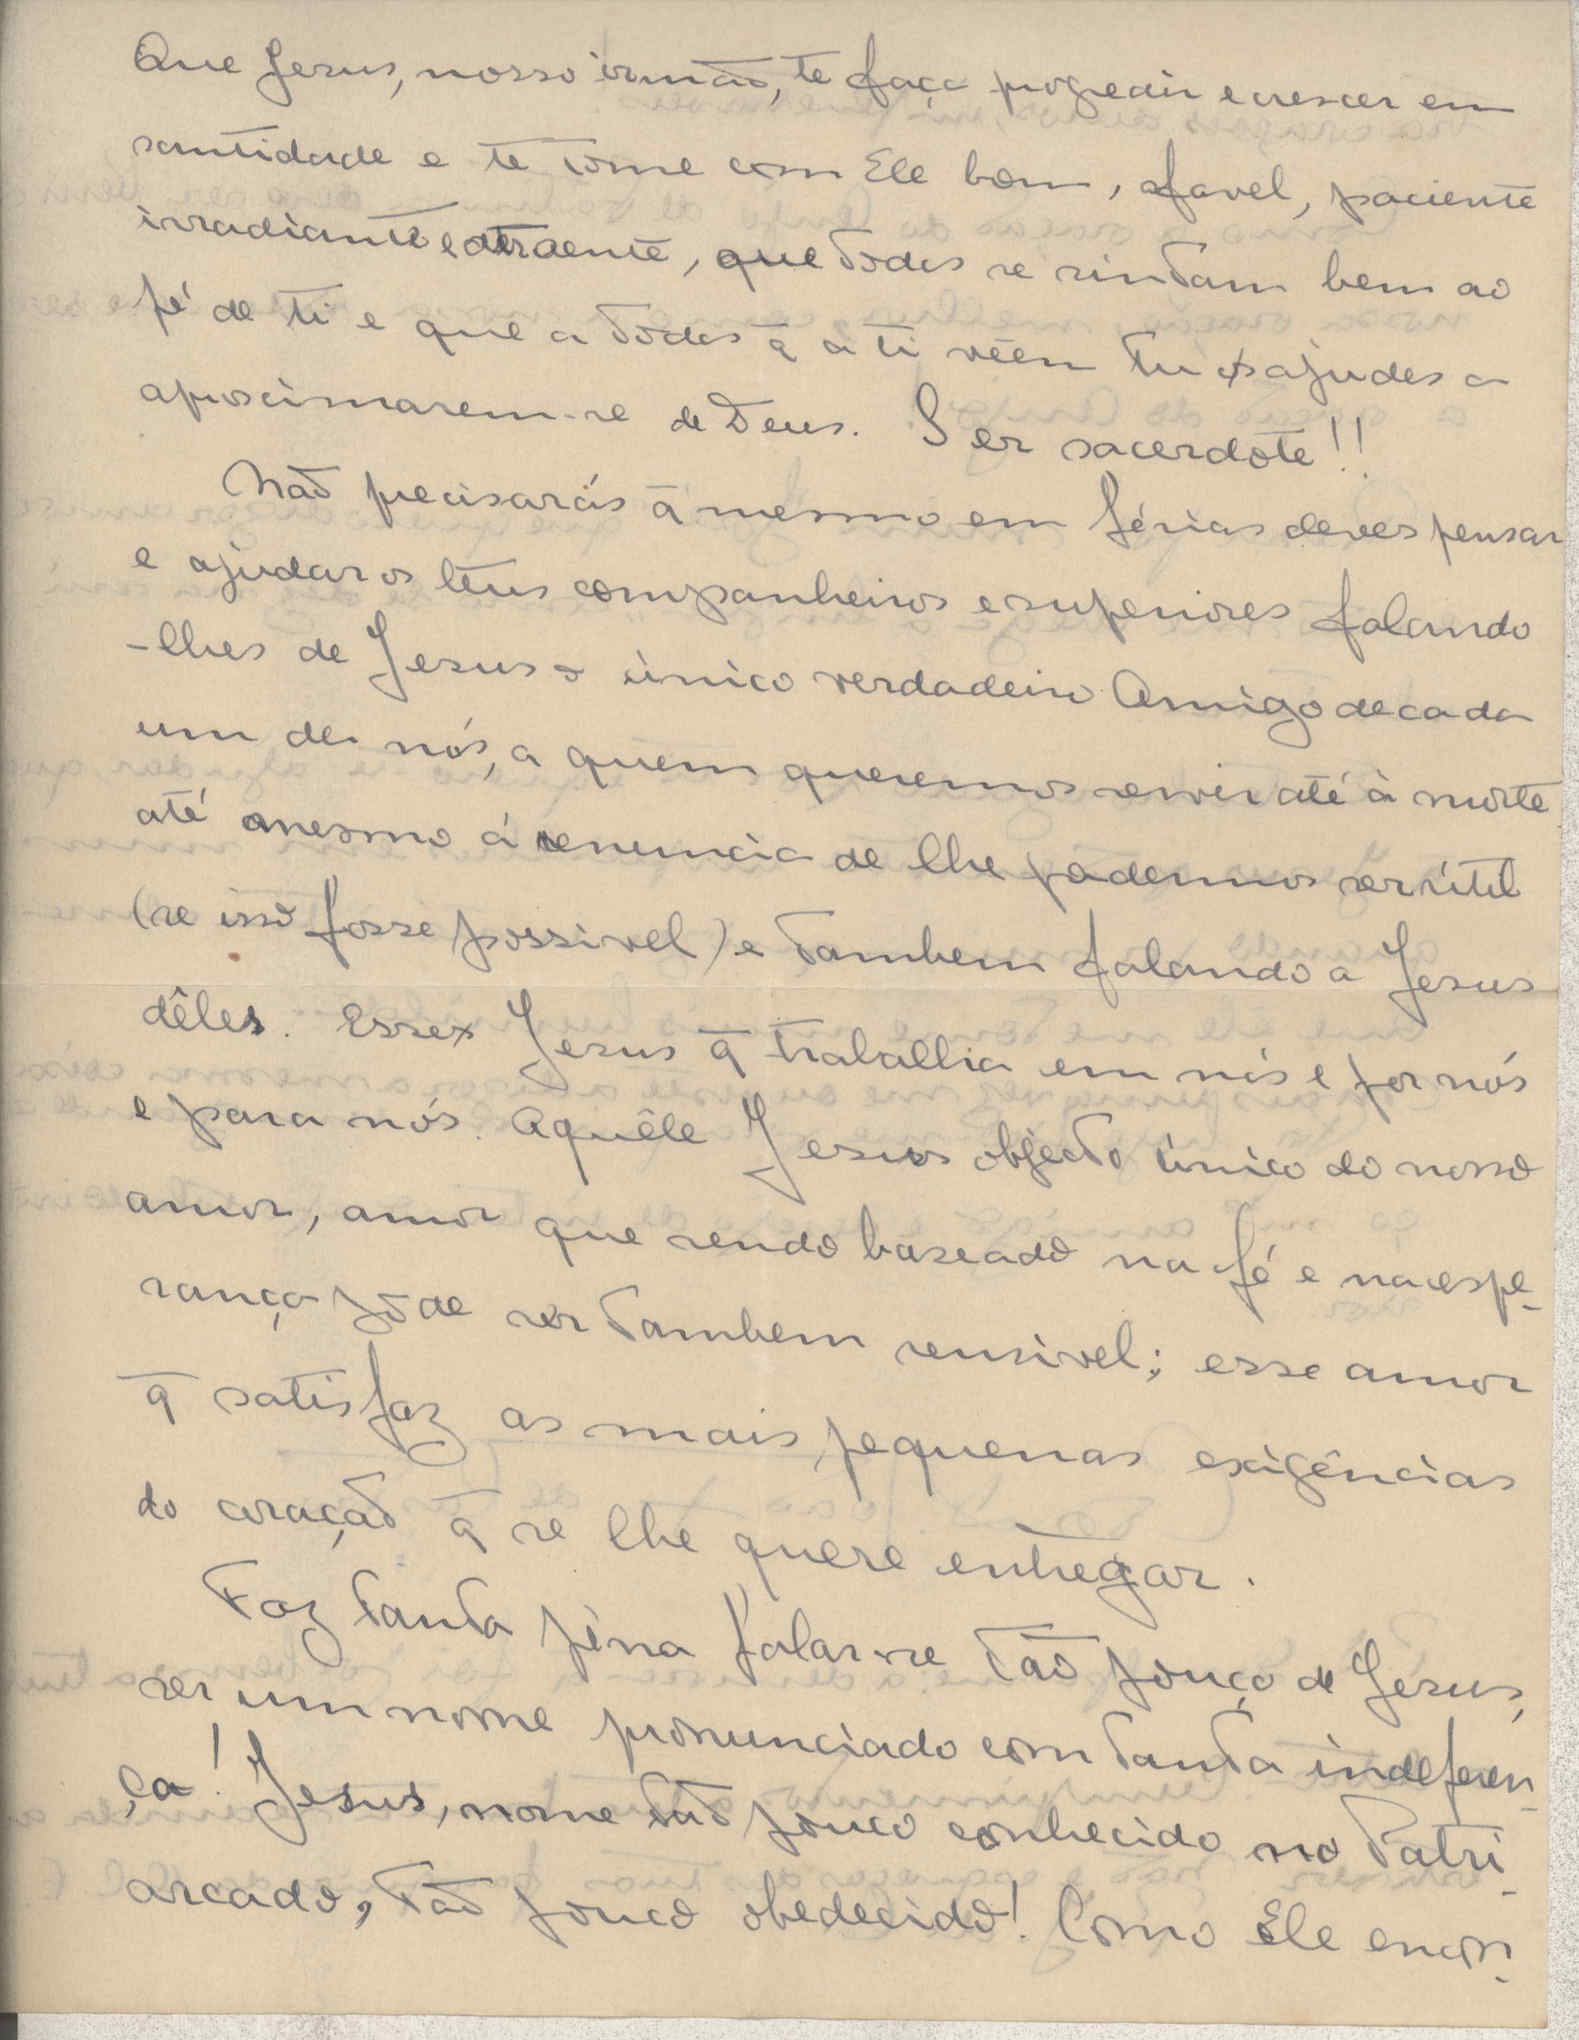 Que Jesus, nosso irmão, te faça progredir e crescer em
santidade e te torne com Ele bom, afavel, paciente
irradiante e atraente, que todos se sintam bem ao
pé de ti e que a todos q̄ a ti vêem tu os ajudes a
aproximarem-se de Deus. Ser sacerdote!!
Não precisarás q̄ mesmo em férias deves pensar
e ajudar os teus companheiros e superiores falando
-lhes de Jesus o único verdadeiro Amigo de cada
um de nós, a quem queremos servir até à morte
até mesmo á renuncia de lhe podermos ser útil
(se isso fosse possivel) e tambem falando a Jesus
dêles. Esse Jesus q̄ trabalha em nós e por nós
e para nós. Aquêle Jesus objecto único do nosso
amor, amor que sendo baseado na fé e na espe-
rança póde ser tambem sensivel; esse amor
q̄ satisfaz as mais pequenas exigências
do coração q̄ se lhe quere entregar.
Faz tanta pena falar-se tão pouço de Jesus,
ser um nome pronunciado com tanta indeferen-
ça! Jesus, nome tão pouco conhecido no Patri-
arcado, tão pouco obedecido! Como Ele encon-